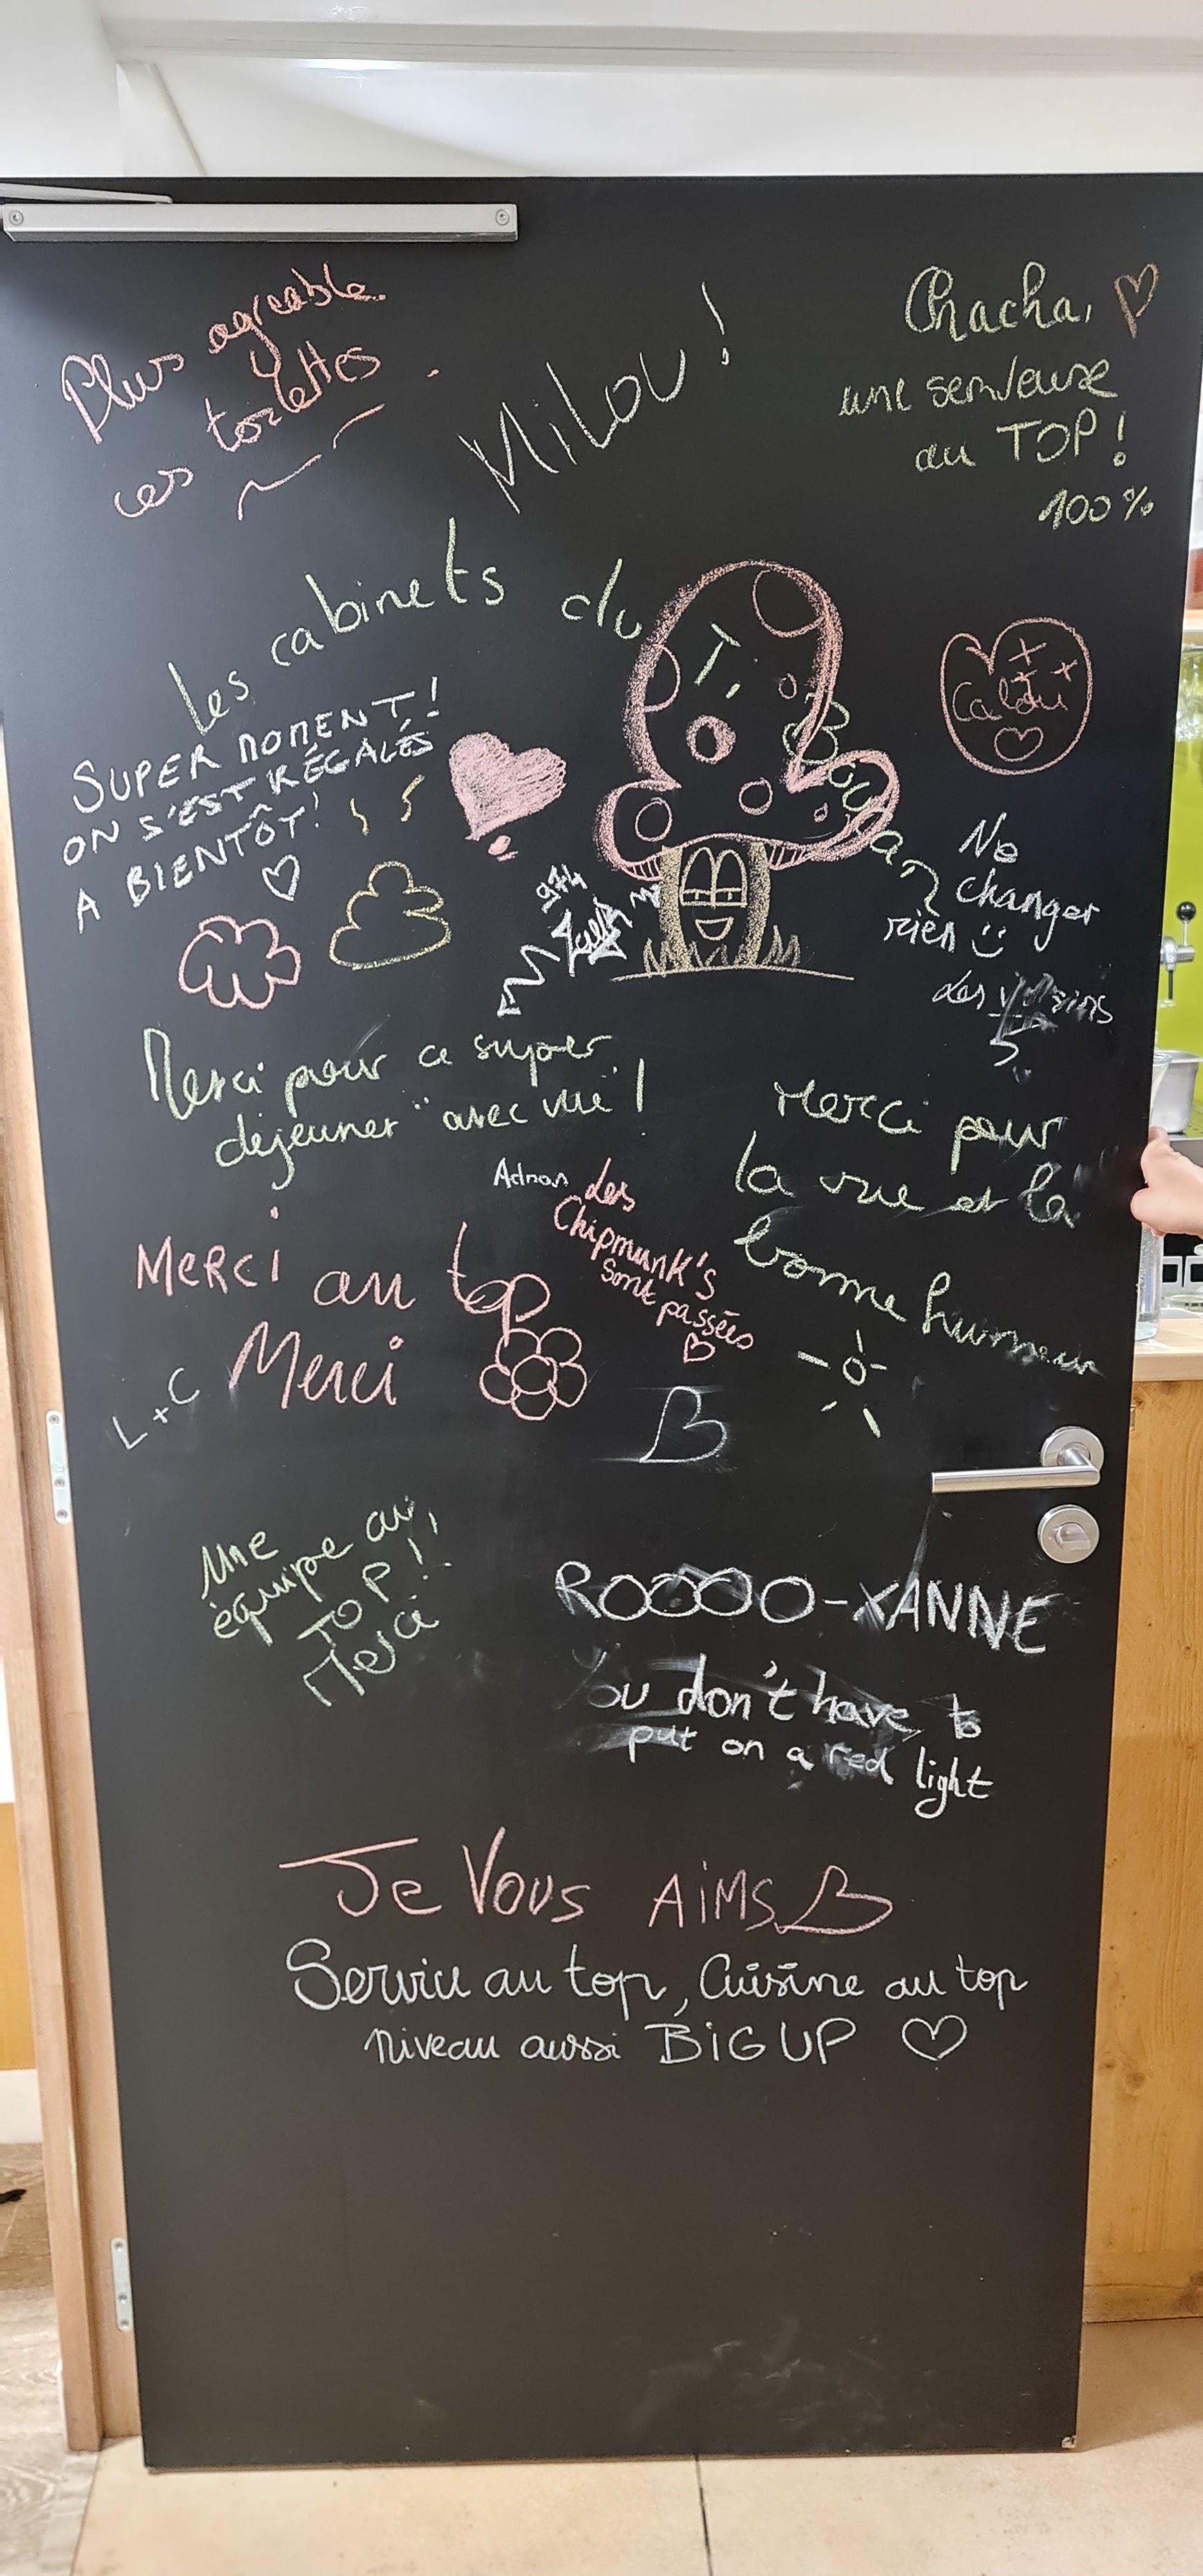 Plus agreable
ces toilettes
MiLOU !
Chacha,
une serveuse
au TOP !
100 %
Les cabinets du Ti Boucan
SUPER MOMENT !
ON S'EST RÉGALÉS
A BIENTÔT !
974
Ne
changer
rien
des voisins
Merci pour ce super
dejeuner "avec vue" !
Merci pour
la vue et la
bonne humeur
des
Chipmunk's
sont passées
MERCi au top
Merci
L+C
Une
équipe au
TOP !
Merci
ROOOO-XANNE
You don't have to
put on a red light
Je Vous AiMS
Service au top, Cuisine au top
niveau aussi BiG UP